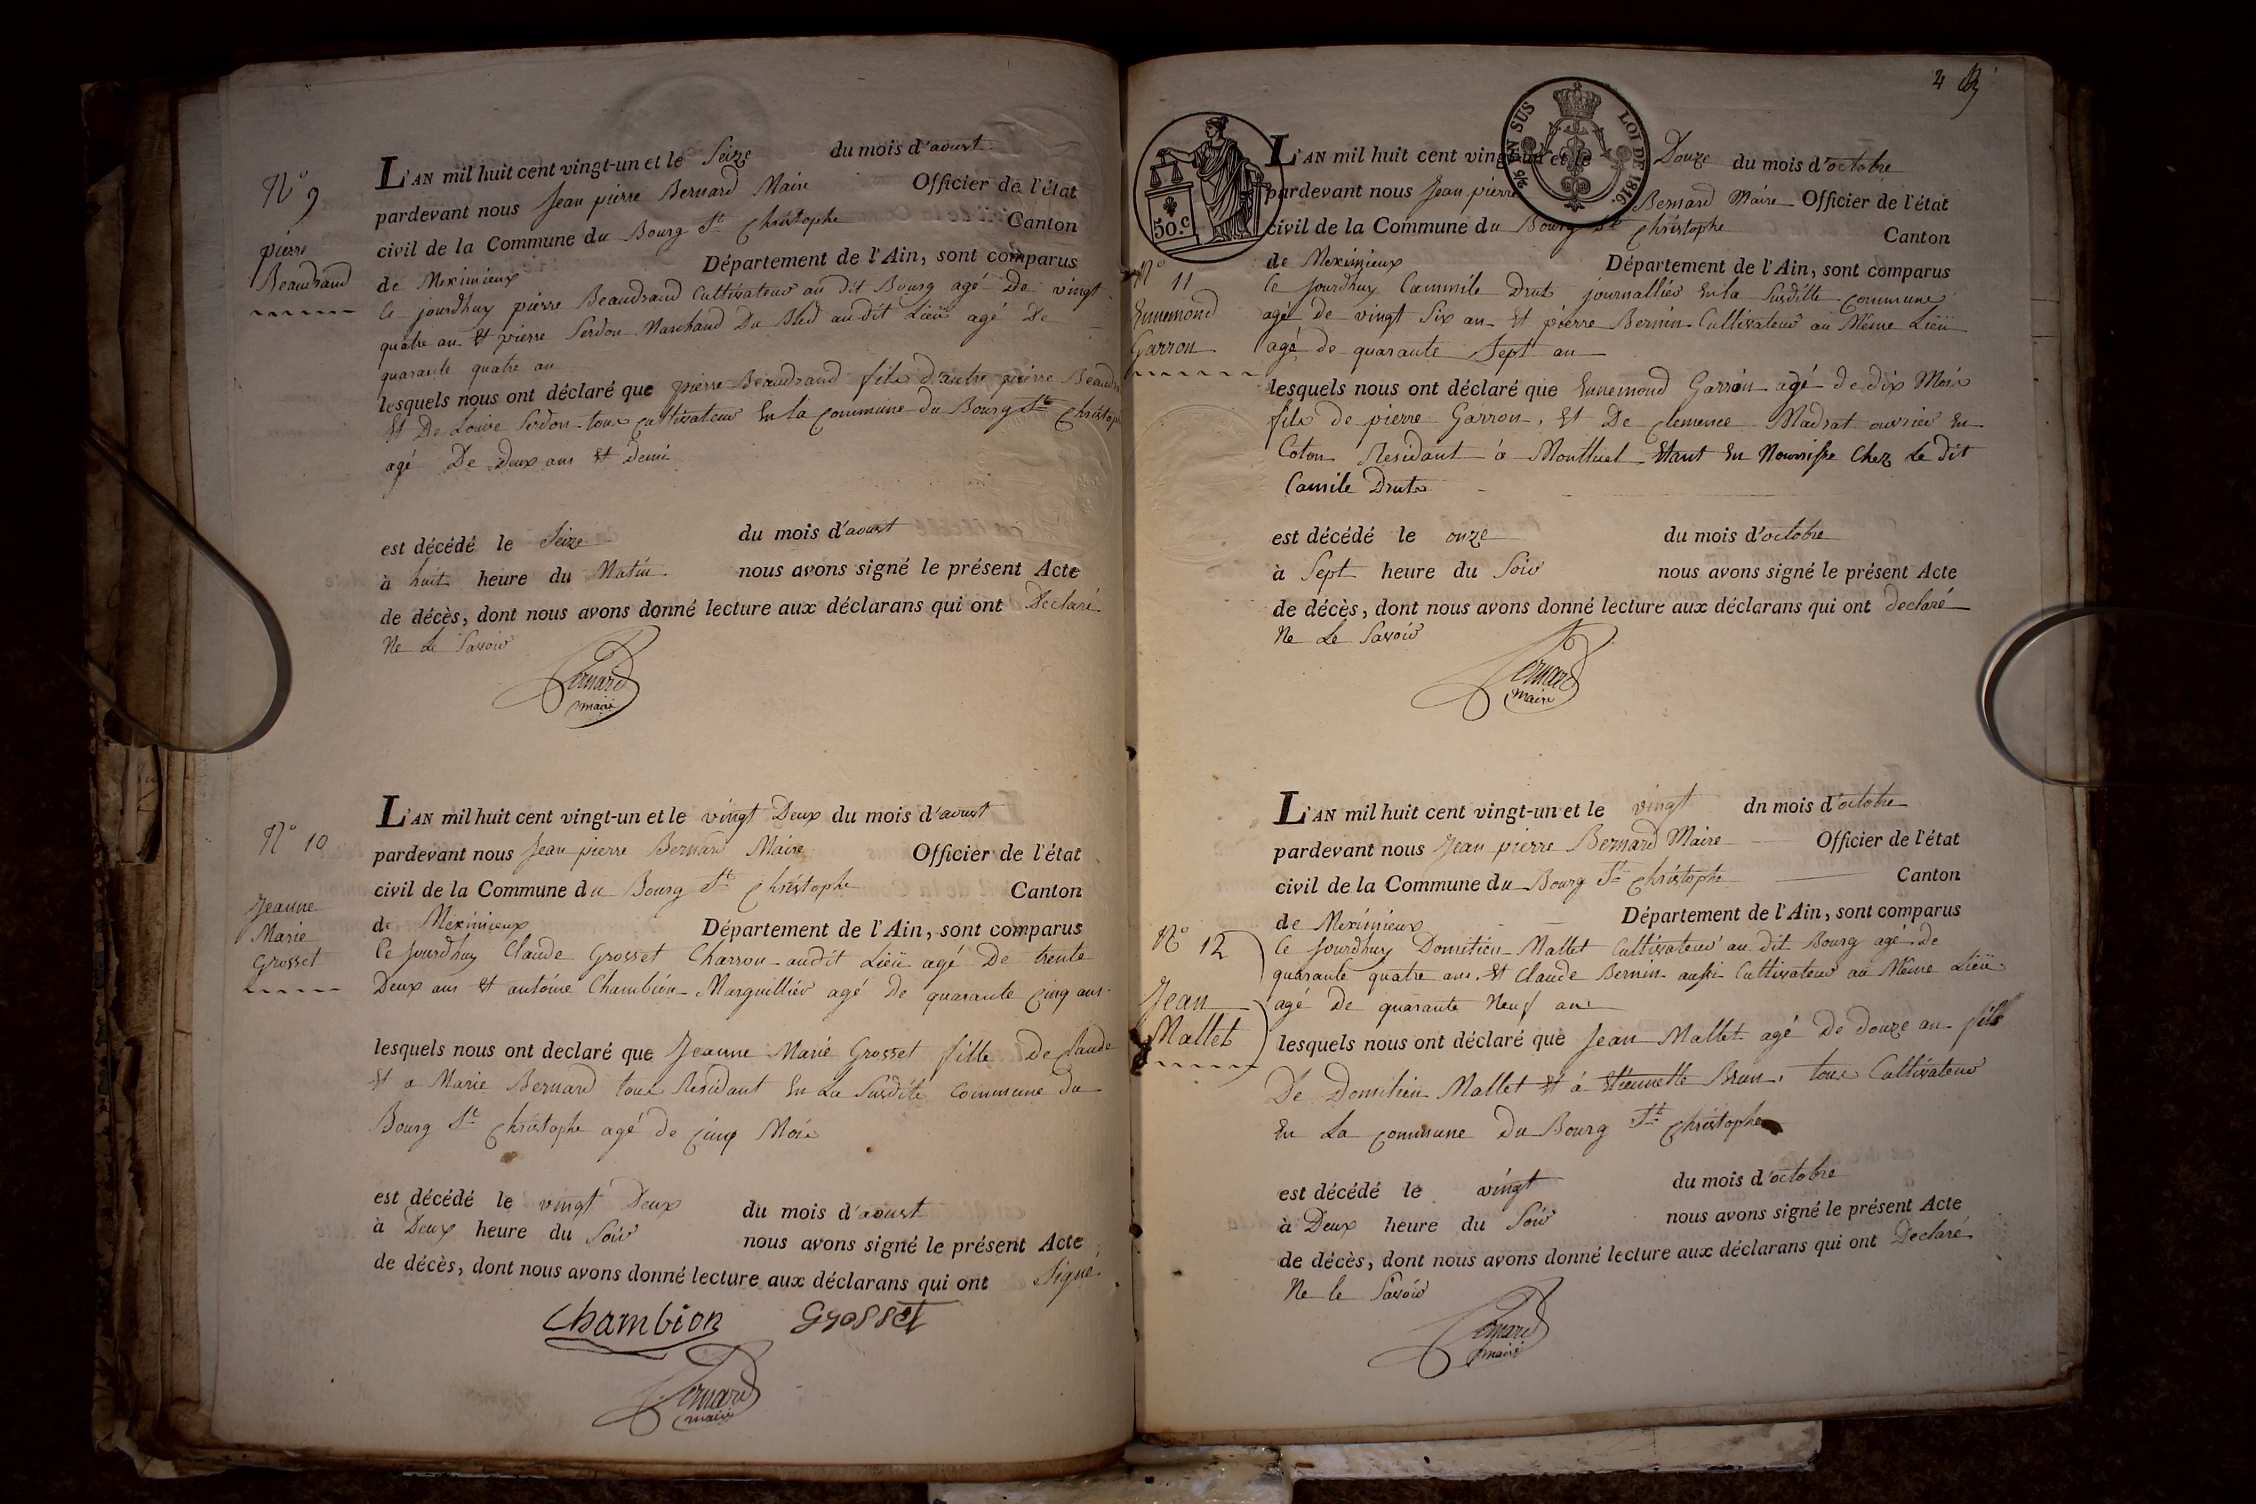 N° 9
pierre
Beaudrand
L'AN mil huit cent vingt-un et le Seize du mois d'aoust
pardevant nous Jean pierre Bernard Maire Officier de l'état
civil de la Commune du Bourg St Christophe Canton
de Meximieux Département de l'Ain, sont comparus
Ce jourdhuy pierre Beaudrand Cultivateur au dit Bourg agé De vingt
quatre an Et pierre Serdon Marchand Du Bled au dit Lieü agé De
quarante quatre an
lesquels nous ont déclaré que pierre Beaudrand fils d'autre pierre Beaudr
Et De Louise Serdon tous cultivateur En la Commune du Bourg St Christop
agé De Deux ans Et Demi
est décédé le Seize du mois d'aoust
à huit heure du Matin nous avons signé le présent Acte
de décès, dont nous avons donné lecture aux déclarans qui ont Declaré
Ne Le Savoir
Bernard
maire
N° 10
Jeanne
Marie
Grosset
L'AN mil huit cent vingt-un et le vingt Deux du mois d'aoust
pardevant nous Jean pierre Bernard Maire Officier de l'état
civil de la Commune du Bourg St Christophe Canton
de Meximieux Département de l'Ain, sont comparus
Ce Jourdhuy Claude Grosset Charron audit Lieü agé De trente
Deux ans Et antoine Chambion Marguillier agé De quarante Cinq ans
lesquels nous ont declaré que Jeanne Marie Grosset fille De Claude
Et a Marie Bernard tous Residant En La Susdite Commune du
Bourg St Christophe agé de Cinq Mois
est décédé le vingt Deux du mois d'aoust
à Deux heure du Soir nous avons signé le présent Acte
de décès, dont nous avons donné lecture aux déclarans qui ont Signe
Chambion Grosset
Bernard
maire
4
50.c
EN SUS LOI DE 1816.
N° 11
Ennemond
Garron
L'AN mil huit cent vingt-un et le Douze du mois d'octobre
pardevant nous Jean pierre Bernard Maire Officier de l'état
civil de la Commune du Bourg St Christophe Canton
de Meximieux Département de l'Ain, sont comparus
Ce jourdhuy Cammile Druts journallier En la Susditte Commune
agé de vingt Six an Et pierre Bernin Cultivateur au Même Lieü
agé de quarante Sept an
lesquels nous ont déclaré que Ennemond Garron agé de dix Mois
fils de pierre Garron, Et De Clemence Madrat ouvrier En
Coton Residant à Montluel Etant En Nourrisse Chez Le dit
Camile Druts
est décédé le onze du mois d'octobre
à Sept heure du Soir nous avons signé le présent Acte
de décès, dont nous avons donné lecture aux déclarans qui ont declaré
Ne Le Savoir
Bernard
maire
N° 12
Jean
Mallet
L'AN mil huit cent vingt-un et le vingt dn mois d'octobre
pardevant nous Jean pierre Bernard Maire Officier de l'état
civil de la Commune du Bourg St Christophe Canton
de Meximieux Département de l'Ain, sont comparus
Ce Jourdhuy Domitien Mallet Cultivateur au dit Bourg agé de
quarante quatre ans Et Claude Bernin aussi Cultivateur au Même Lieü
agé De quarante Neuf ans
lesquels nous ont déclaré que Jean Mallet agé De douze an fils
De Domitien Mallet Et à Etiennette Brun, tous Cultivateur
En La Commune Du Bourg St Christophe
est décédé le vingt du mois d'octobre
à Deux heure du Soir nous avons signé le présent Acte
de décès, dont nous avons donné lecture aux déclarans qui ont Declaré
Ne le Savoir
Bernard
maire